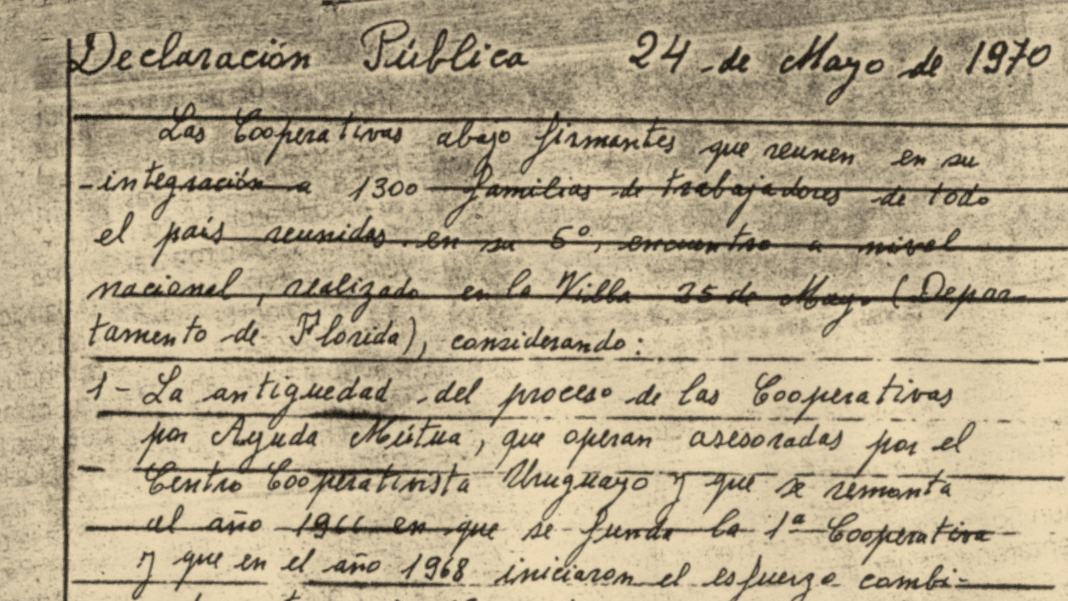 Declaración Pública 24 de Mayo de 1970
Las Cooperativas abajo firmantes que reunen en su
integración a 1300 familias de trabajadores de todo
el país reunidas en su 6º, encuentro a nivel
nacional, realizado en la Villa 25 de Mayo (Depar-
tamento de Florida), considerando:
1- La antiguedad del proceso de las Cooperativas
por Ayuda Mútua, que operan asesoradas por el
Centro Cooperativista Uruguayo y que se remonta
al año 1966 en que se funda la 1ª Cooperativa
y que en el año 1968 iniciaron el esfuerzo combi-